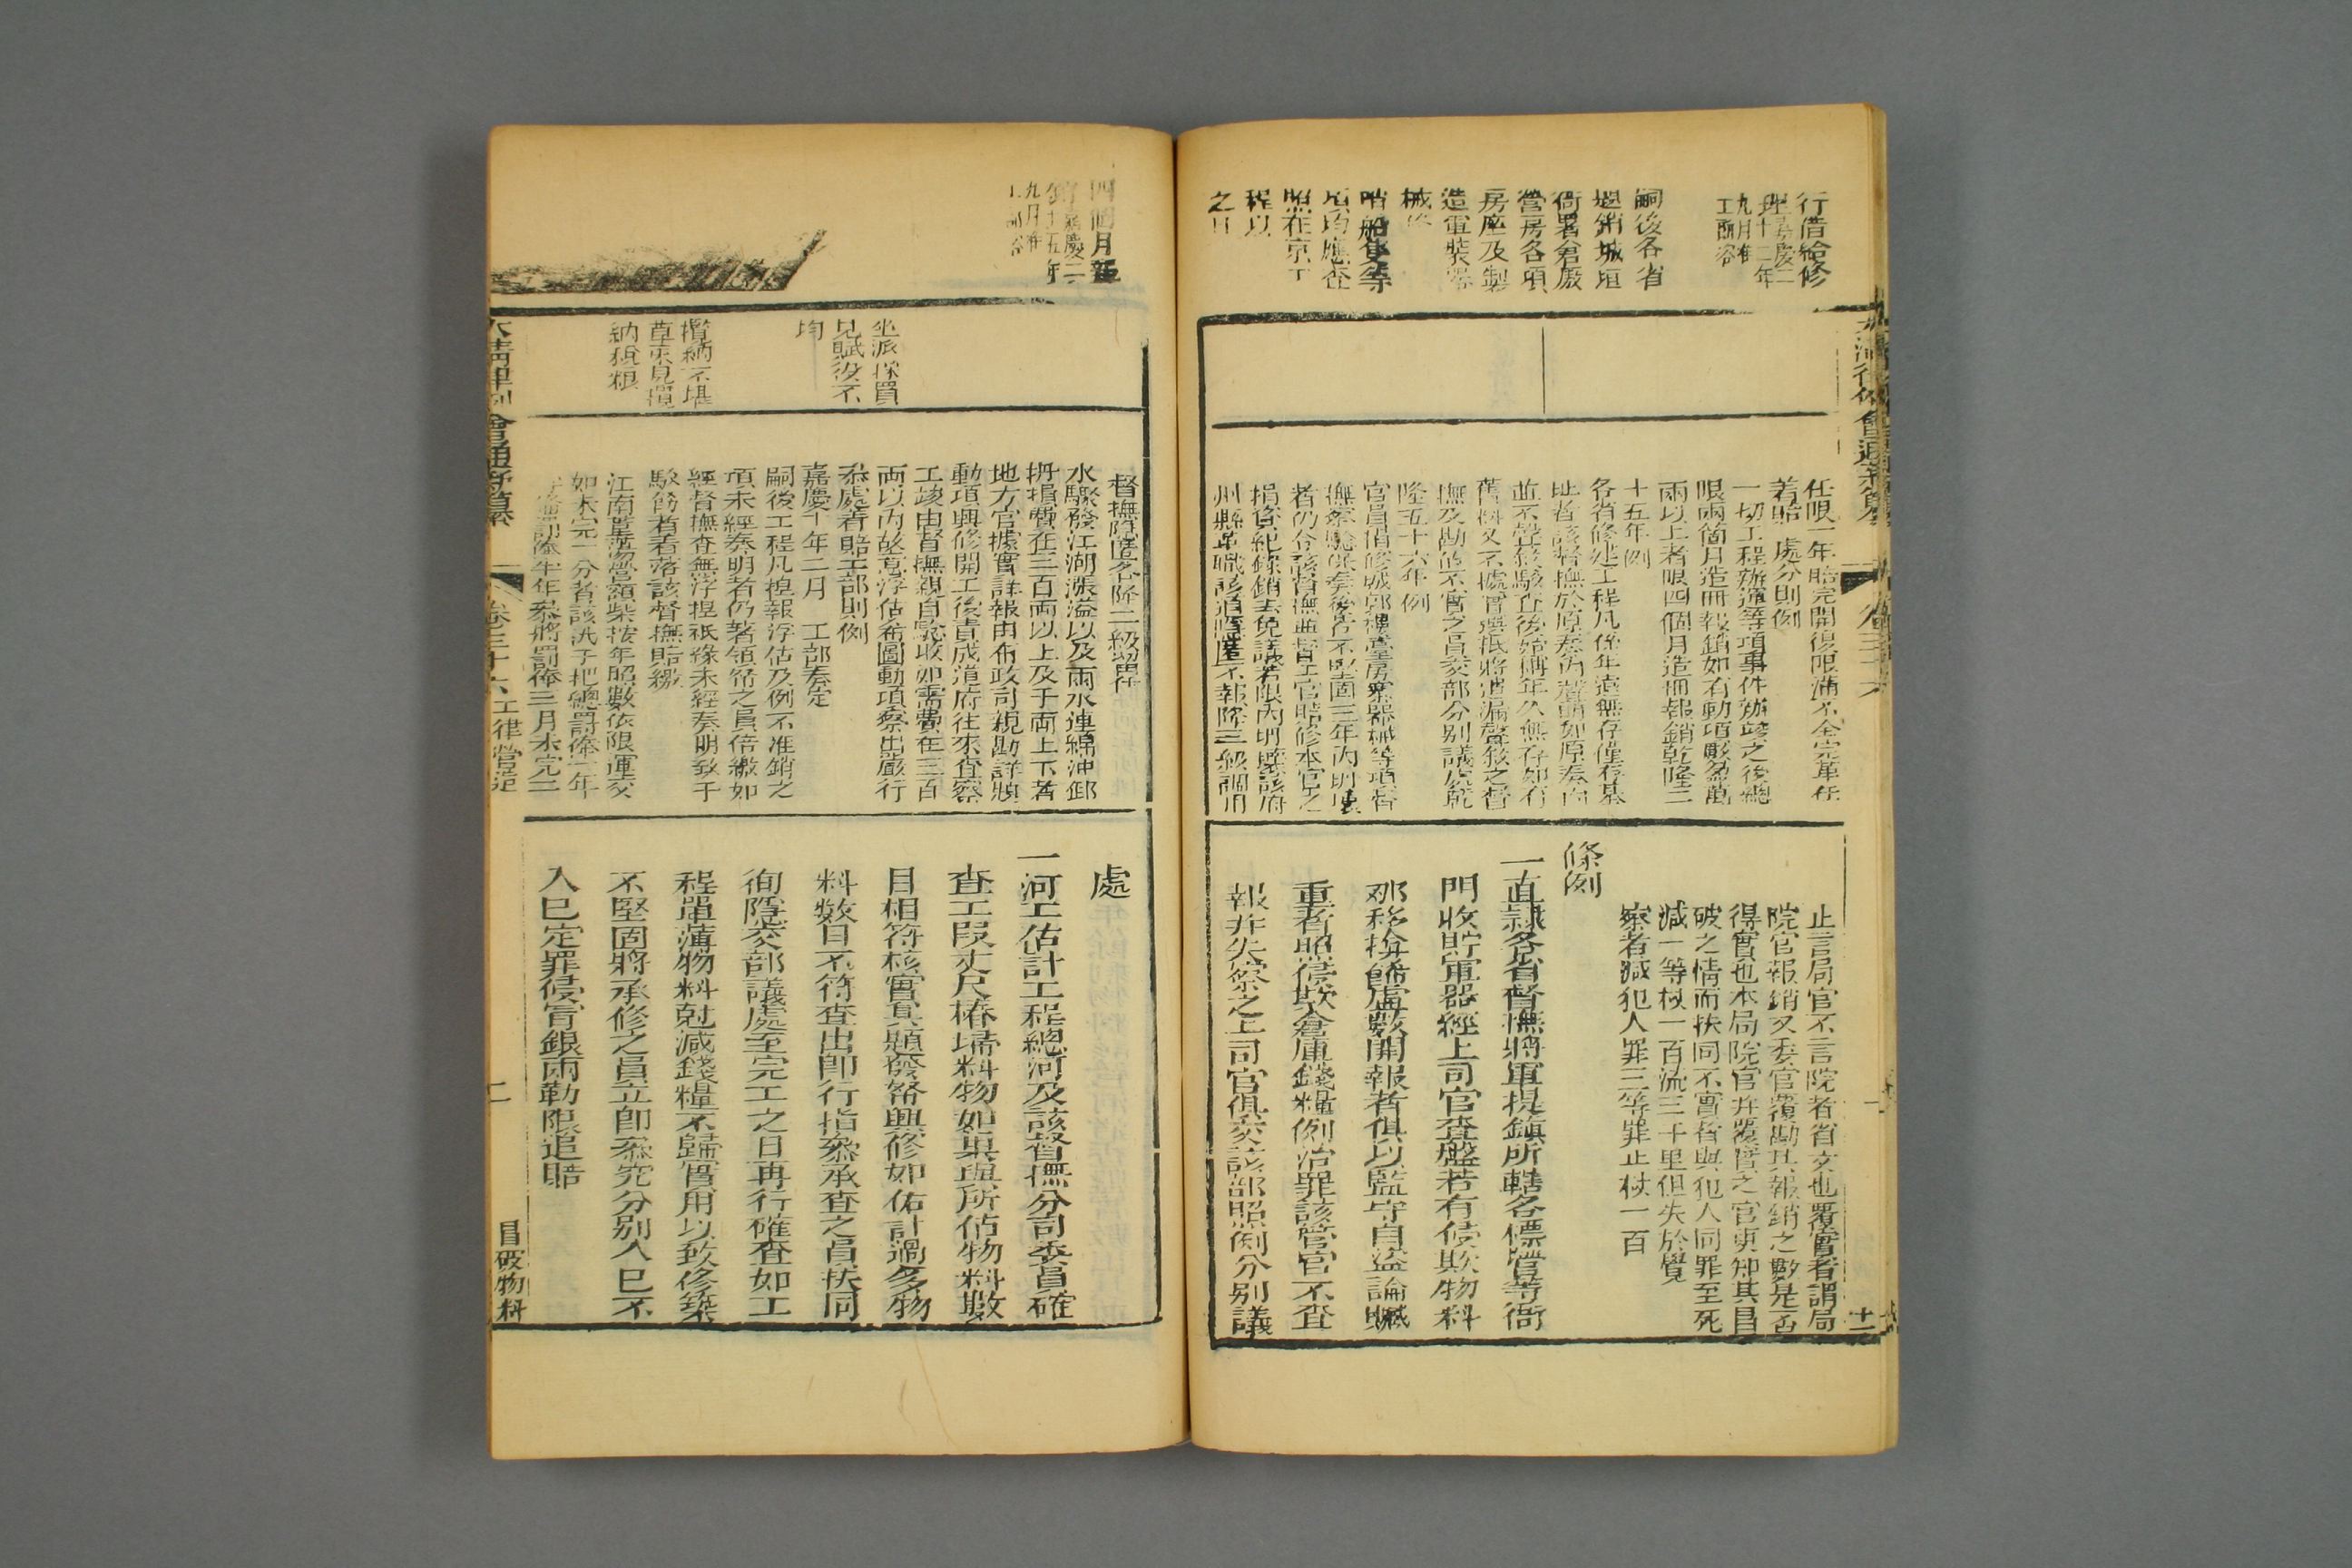 行借給修
理嘉慶二
十二年
九月准
工部咨
嗣後各省
題銷城垣
衙署倉廒
營房各項
房座及製
造軍裝器
械修
哨船隻等
項均應查
照在京工
程以
之日
任限一年賠完開復限滿不全完革任
着賠 處分則例
一切工程辦運等項事件辦竣之後總
限兩箇月造冊報銷如有動項夥多萬
兩以上者限四個月造冊報銷乾隆二
十五年例
各省修建工程凡係年遠無存僅存基
址者該督撫於原奏內聲明如原奏內
並不聲敘駁查後始稱年久無存如有
舊料又不據實選抵將遺漏聲敘之督
撫及勘估不實之員交部分別議處乾
隆五十六年例
官員倡修城郭樓臺房屋器械等項督
撫察驗保奏後若不堅固三年內坍壞
者仍令該督撫監督工官賠修本官之
捐資紀錄銷去免議若限內坍壞該府
州縣革職該道隱匿不報降三級調用
止言局官不言院者省文也覆實者謂局
院官報銷又委官覆勘其報銷之數是否
得實也本局院官并覆實之官吏知其冒
破之情而扶同不實者與犯人同罪至死
減一等杖一百流三千里但失於覺
察者減犯人罪三等罪止杖一百
條例
一直隸各省督撫將軍提鎮所轄各標營等衙
門收貯軍器經上司官查盤若有侵欺物料
那移揜飾虛數開報者俱以監守自盜論贓
重者照侵欺倉庫錢糧例治罪該管官不查
報并失察之上司官俱交該部照例分別議
四個月報
銷嘉慶二
十五年
九月准
工部咨
坐派採買
見賦役不
均
攬納不堪
草束見攬
納稅糧
督撫隱匿各降二級留任
水驟發江湖漲溢以及雨水連綿沖卸
坍損費在三百兩以上及千兩上下者
地方官據實詳報由布政司親勘詳題
動項興修開工後責成道府往來查察
工竣由督撫親自驗收如需費在三百
兩以內恣意浮估希圖動項察出嚴行
叅處着賠工部則例
嘉慶十年二月 工部奏定
嗣後工程凡捏報浮估及例不准銷之
項未經奏明者仍著領帑之員倍繳如
經督撫查無浮捏祇緣未經奏明致干
駁飭者着落該督撫賠繳
江南葦蕩營額柴按年照數依限運交
如未完一分者該汛千把總罰俸一年
守備罰俸半年叅將罰俸三月未完二
處
一河工估計工程總河及該督撫分司委員確
查工段丈尺椿埽料物如果與所估物料數
目相符核實具題發帑興修如佑計過多物
料數目不符查出卽行指叅承查之員扶同
徇隱交部議處至完工之日再行確查如工
程單薄物料尅減錢糧不歸實用以致修築
不堅固將承修之員立卽叅究分別入巳不
入巳定罪侵冒銀兩勒限追賠
大清律例會通新纂
卷三十六工律營造
冒破物料